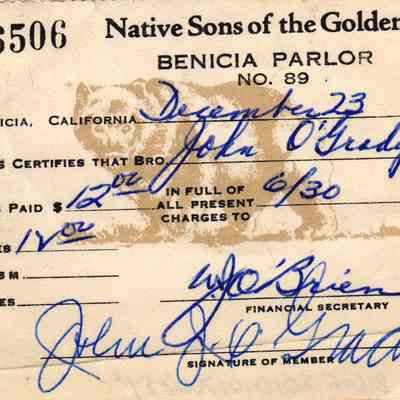 3506
Native Sons of the Golden
BENICIA PARLOR
NO. 89
ICIA, CALIFORNIA December 23
S CERTIFIES THAT BRO. John O'Grady
S PAID $ 12 00 IN FULL OF ALL PRESENT CHARGES TO 6/30
ES 12 00
SM
ES
W J O'Brien
FINANCIAL SECRETARY
John J. O'Grad
SIGNATURE OF MEMBER